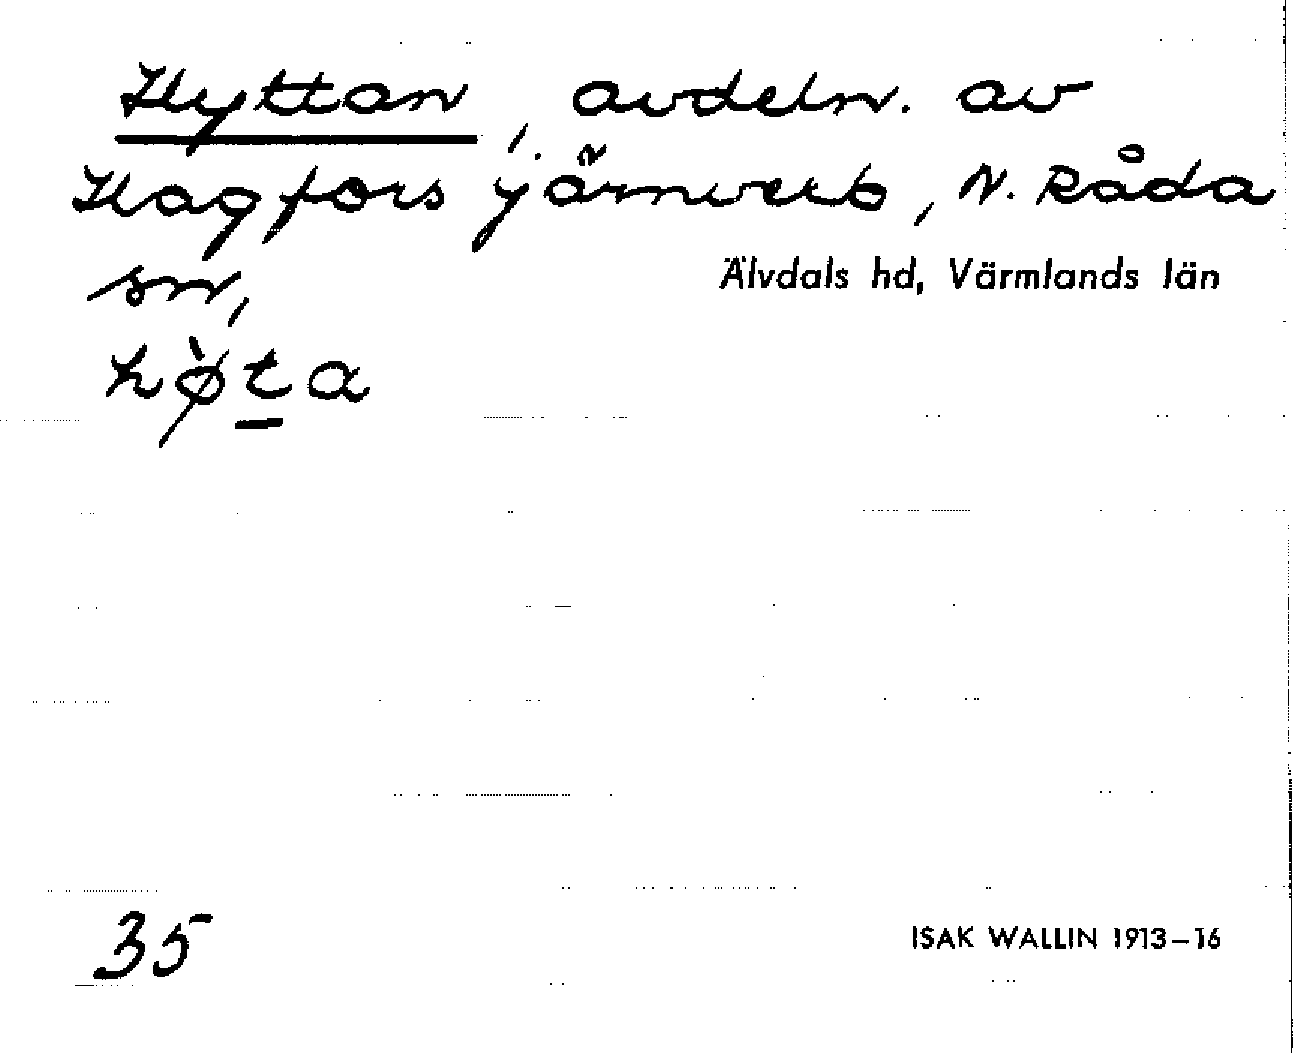 Hyttan, avdeln. av
Hagfors järnverk, N. Råda
sn,
Älvdals hd, Värmlands län
hø̀ṯa
35
ISAK WALLIN 1913–16